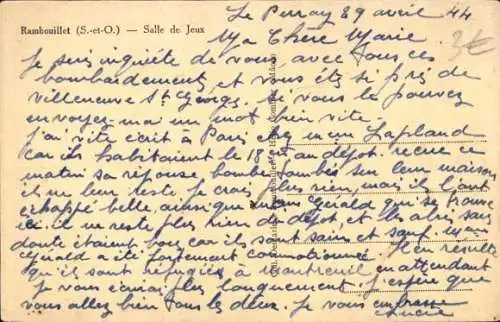 Rambouillet (S.-et-O.) — Salle de Jeux
Le Perray 29 avril 44
Ma Chère Marie
3€
Je suis inquiète de vous avec tous ces
bombardements, et vous êts si près de
villeneuve St Georges. Si vous le pouvez
envoyez-moi un mot bien vite.
J'ai vite écrit à Paris chez Lapland
car ils habitaient le 18 au dépot. recue ce
matin sa réponse, bombe tombés sur leur maison
il ne leur reste plus rien, mais ils l'ont
échappé belle, ainsi que Gérald qui se trouve
ici. il ne reste plus rien du dépot, et les abris sans
doute étaient bons car ils sont sains et sauf.
Gérald a été fortement commotionné. Il en résulte
qu'ils sont réfugiés à Montreuil en attendant
Je vous écrirai plus longuement. J'espère que
vous allez bien tous les deux. Je vous embrasse
Lucie